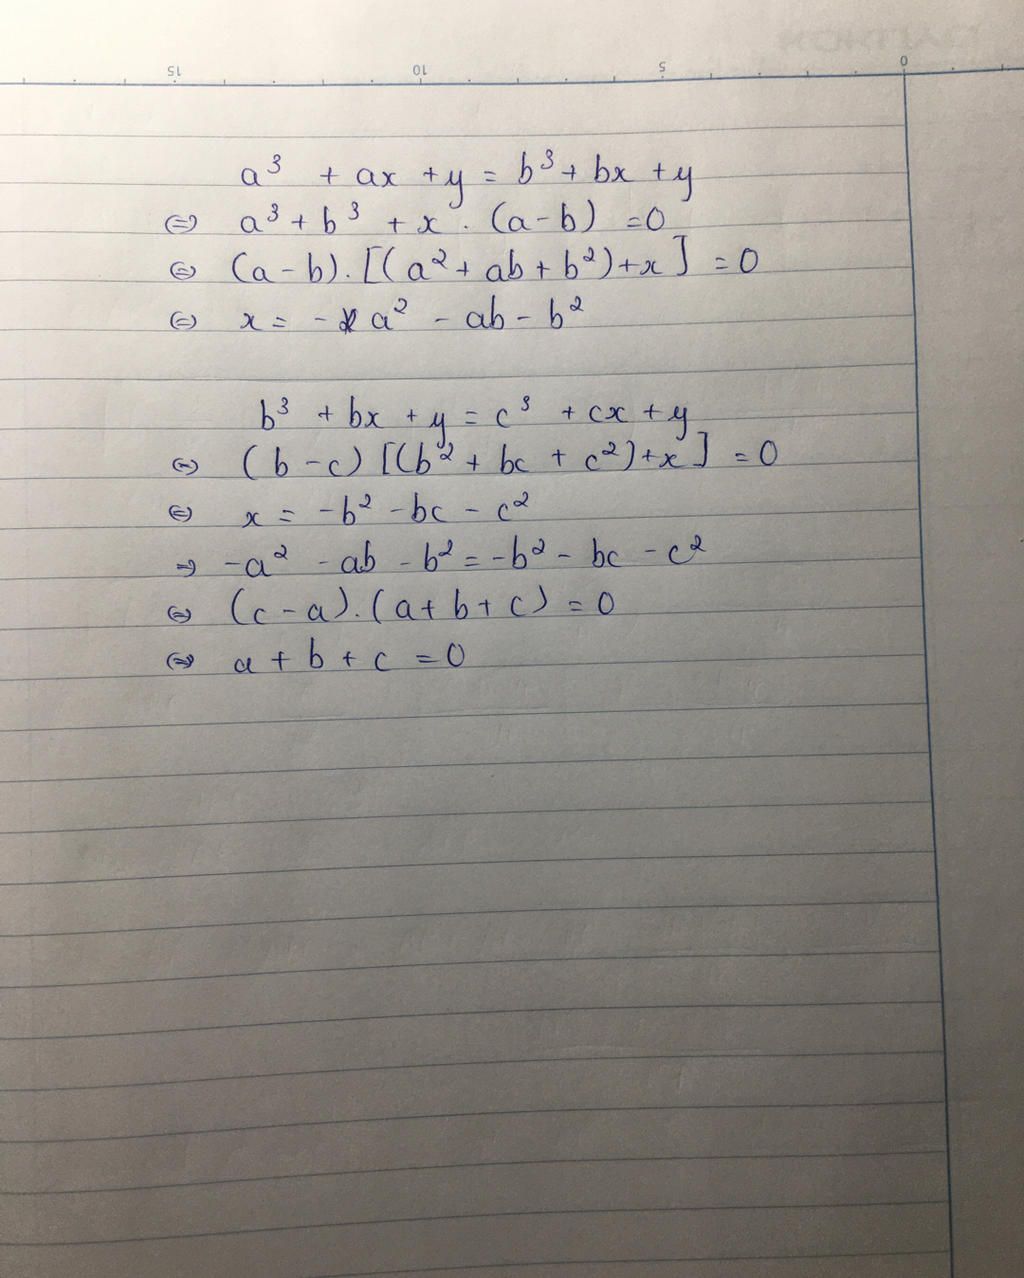 0 5 10 15
a³ + ax + y = b³ + bx + y
⇔ a³ + b³ + x . (a - b) = 0
⇔ (a - b). [(a² + ab + b²) + x] = 0
⇔ x = - a² - ab - b²
b³ + bx + y = c³ + cx + y
⇔ (b - c) [(b² + bc + c²) + x] = 0
⇔ x = -b² - bc - c²
⇒ -a² - ab - b² = -b² - bc - c²
⇔ (c - a). (a + b + c) = 0
⇔ a + b + c = 0